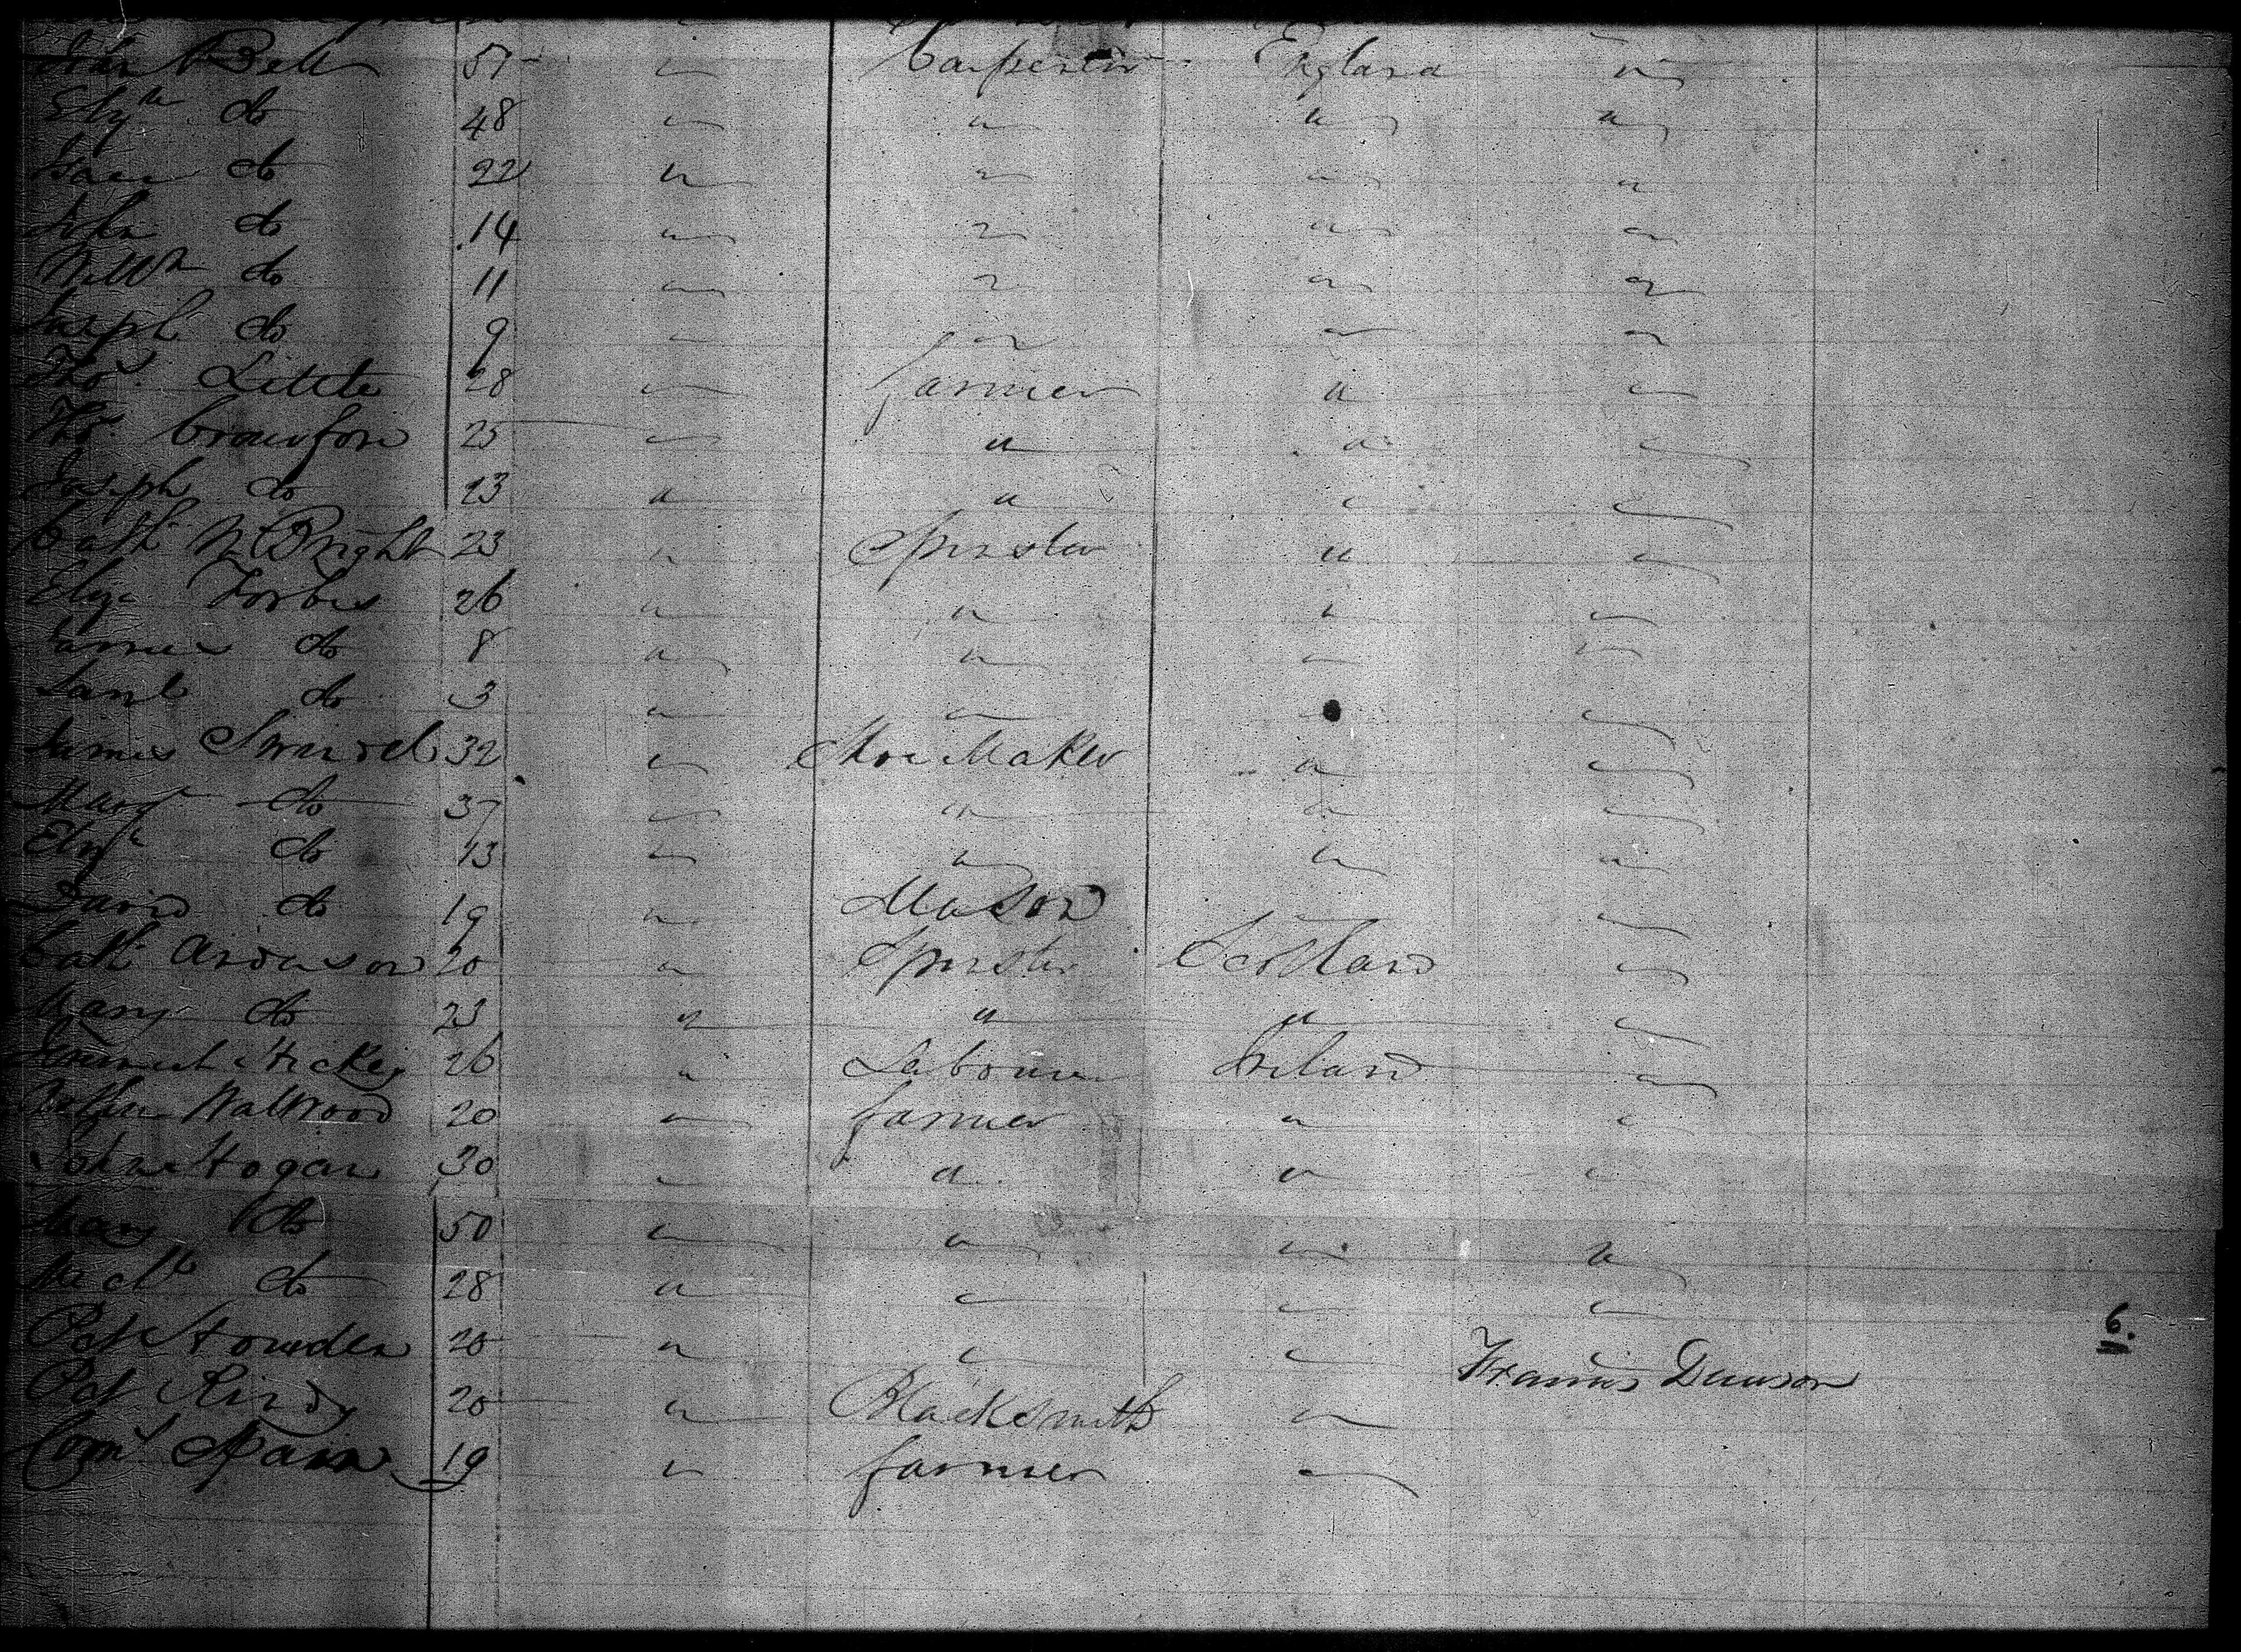 John Bell 57 " Carpenter England "
Elizth do 48 " " " "
Isaac do 22 " " " "
John do 14 " " " "
Willm do 11 " " " "
Joseph do 9 " " " "
Thos. Little 28 " farmer " "
Thos. 25 " " " "
Joseph do 23 " " " "
Cath McBright 23 " Spinster " "
Eliza Forbes 26 " " " "
James do 8 " " " "
Saml do 3 " " " "
James 32 " Shoe Maker " "
Margt do 37 " " " "
Elizh do 13 " " " "
David do 19 " Mason "
Cath Anderson 20 " Spinster Scotland "
Mary do 23 " " " "
Hickey 26 " Labourer Ireland "
Wallwood 20 " farmer " "
John Hogan 30 " " " "
Mary do 50 " " " "
Michl do 28 " " " "
Pat Howden 20 " " " "
Francis Dawson
6.
Pat 20 " Blacksmith "
Corns. Spain 19 " farmer "